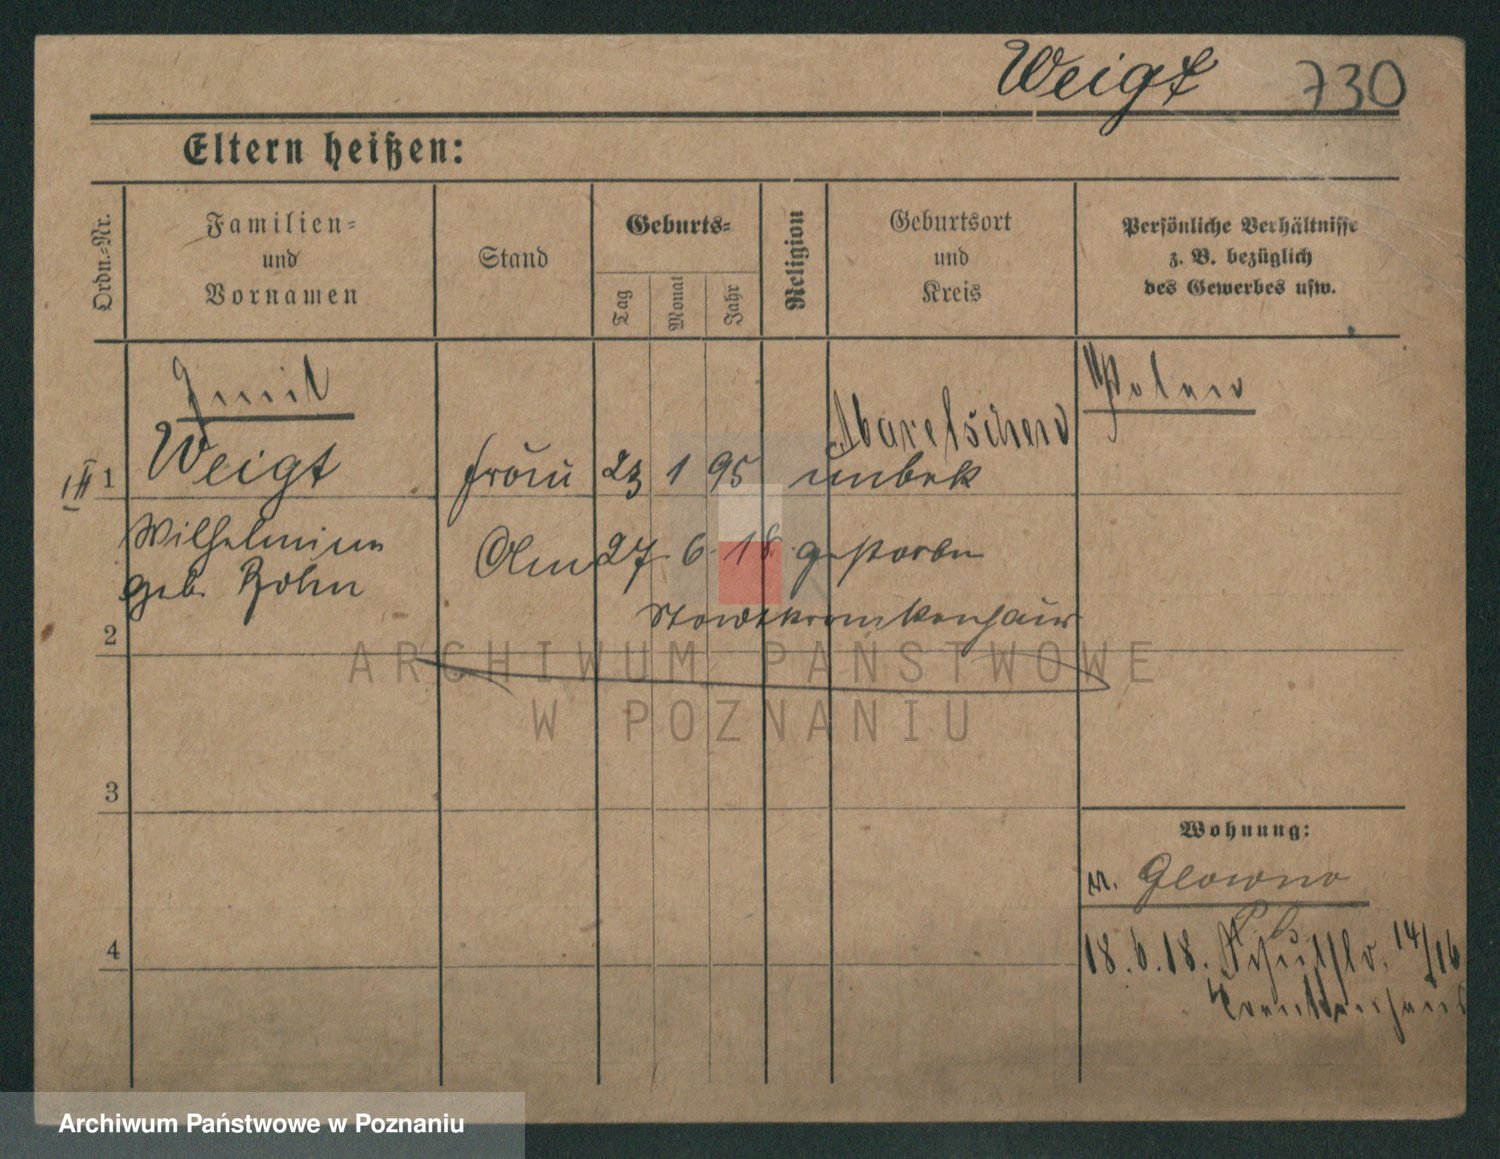 Weigt 730
Eltern heißen:
Ordn.-Nr.
Familien-
und
Vornamen
Stand
Geburts-
Tag
Monat
Jahr
Religion
Geburtsort
und
Kreis
Persönliche Verhältnisse
z. B. bezüglich
des Gewerbes usw.
Polen
1 Weigt
frau 23 1 95
unbek
Wilhelmine
geb.
Am 27. 6. 18. gestorben
Stadtkrankenhaus
2
3
4
Wohnung:
Glowno
18. 6. 18. Schulstr. 14/16
Krankenhaus
ARCHIWUM PAŃSTWOWE
W POZNANIU
Archiwum Państwowe w Poznaniu